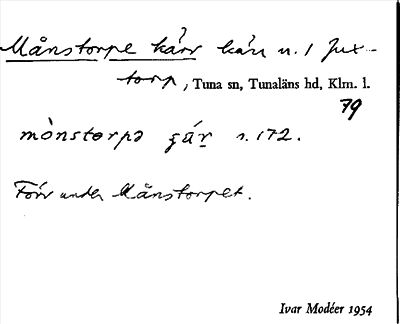 Månstorpe kärr kärr n. 1 Jux-
torp, Tuna sn, Tunaläns hd, Klm. l.
79
mònstorpə s. 172.
Förr under Månstorpet.
Ivar Modéer 1954